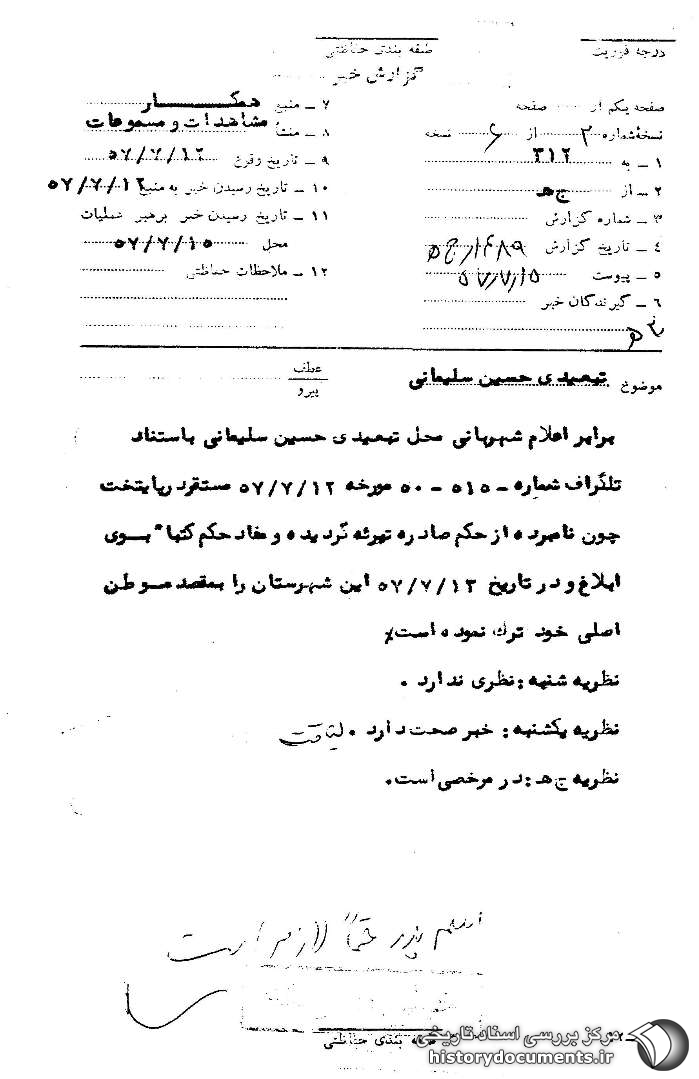 درجه فوریت
طبقه بندی حفاظتی
گزارش خبر
صفحه یکم از صفحه
نسخه شماره ۲ از ۶ نسخه
۱ ـ به ۳۱۲
۲ ـ از ج ه‍
۳ ـ شماره گزارش
۴ ـ تاریخ گزارش
۵ ـ پیوست ۵۷/۷/۱۵
۶ ـ گیرندگان خبر
۷ ـ منبع همکار
۸ ـ منشأ مشاهدات و مسموعات
۹ ـ تاریخ وقوع ۵۷/۷/۱۲
۱۰ ـ تاریخ رسیدن خبر به منبع ۵۷/۷/۱۲
۱۱ ـ تاریخ رسیدن خبر برهبر عملیات
محل ۵۷/۷/۱۵
۱۲ ـ ملاحظات حفاظتی
موضوع تبعیدی حسین سلیمانی
عطف
پیرو
برابر اعلام شهربانی محل تبعیدی حسین سلیمانی باستناد
تلگراف شماره ـ ۵۱۵ ـ ۵۰ مورخه ۵۷/۷/۱۲ مستقر در پایتخت
چون نامبرده از حکم صادره تبرئه گردیده و مفاد حکم کتباً بوی
ابلاغ و در تاریخ ۵۷/۷/۱۳ این شهرستان را بمقصد موطن
اصلی خود ترک نموده است٪
نظریه شنبه : نظری ندارد .
نظریه یکشنبه : خبر صحت دارد . لیاقت
نظریه ج ه‍ : در مرخصی است.
طبقه بندی حفاظتی
مرکز بررسی اسناد تاریخی
historydocuments.ir